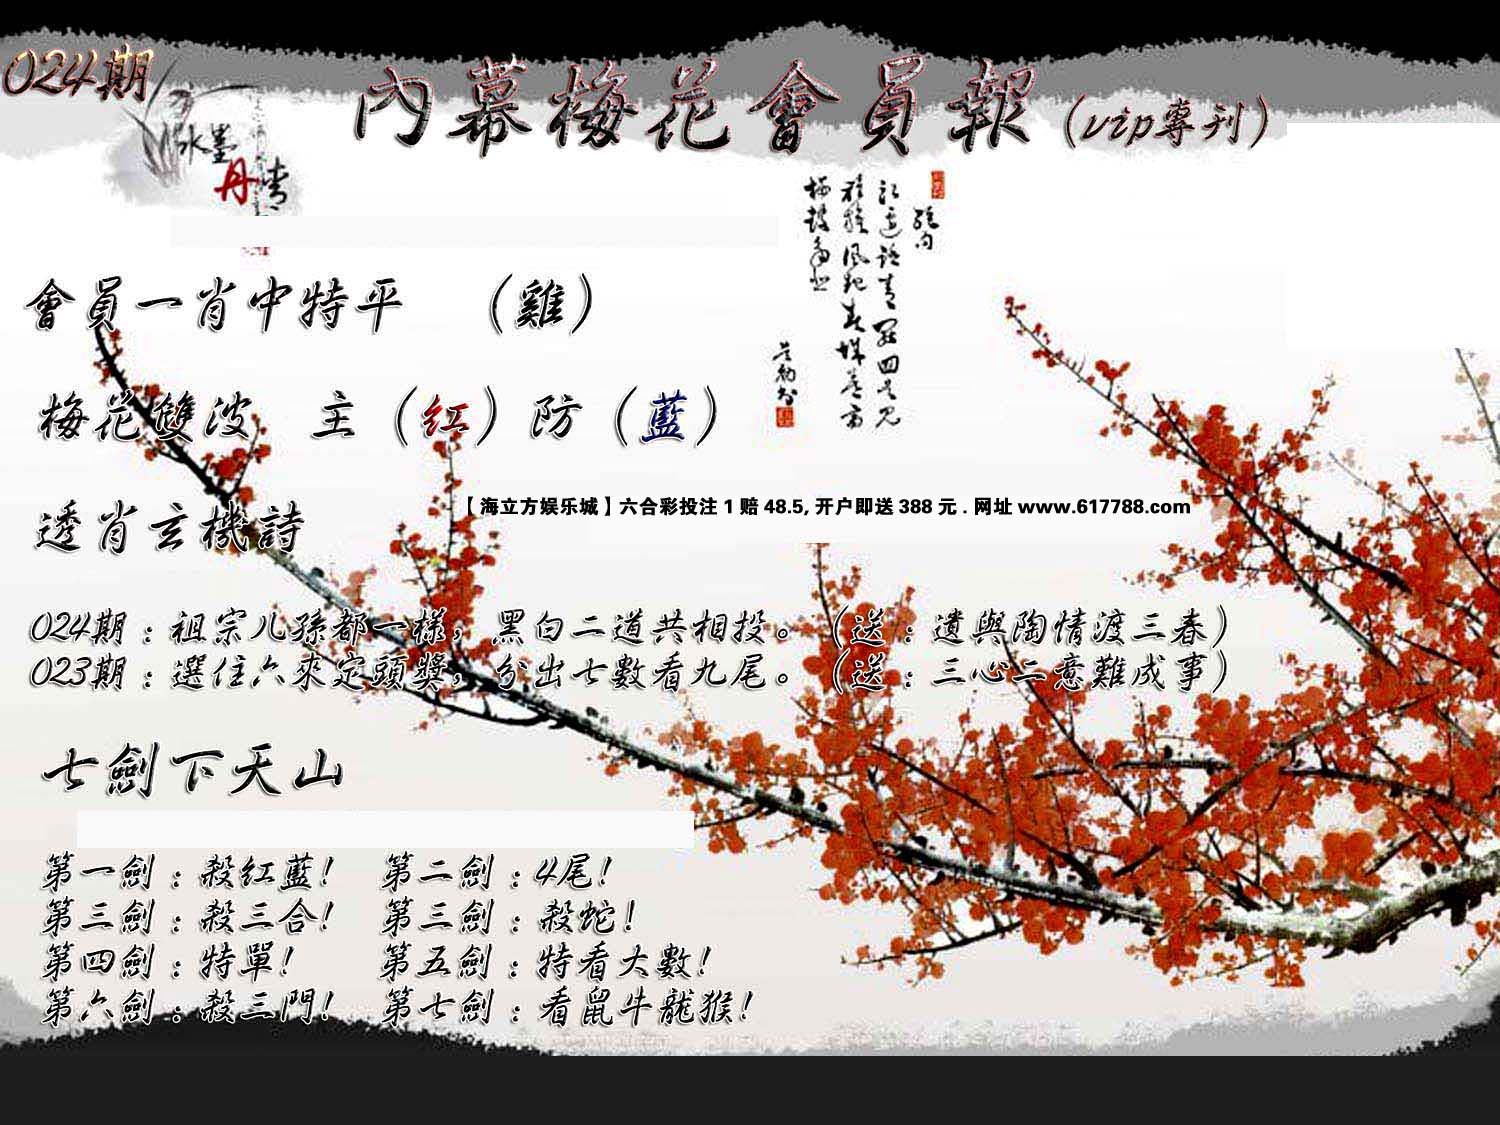 024期
內幕梅花會員報（vip專刊）
水墨
丹青
絕句
會員一肖中特平 （雞）
梅花雙波 主（紅）防（藍）
【海立方娱乐城】六合彩投注1赔48.5,开户即送388元.网址www.617788.com
透肖玄機詩
024期：祖宗儿孫都一樣，黑白二道共相投。（送：遺與陶情渡三春）
023期：選住六來定頭獎，分出七數看九尾。（送：三心二意難成事）
七劍下天山
第一劍：殺紅藍！ 第二劍：4尾！
第三劍：殺三合！ 第三劍：殺蛇！
第四劍：特單！ 第五劍：特看大數！
第六劍：殺三門！ 第七劍：看鼠牛龍猴！